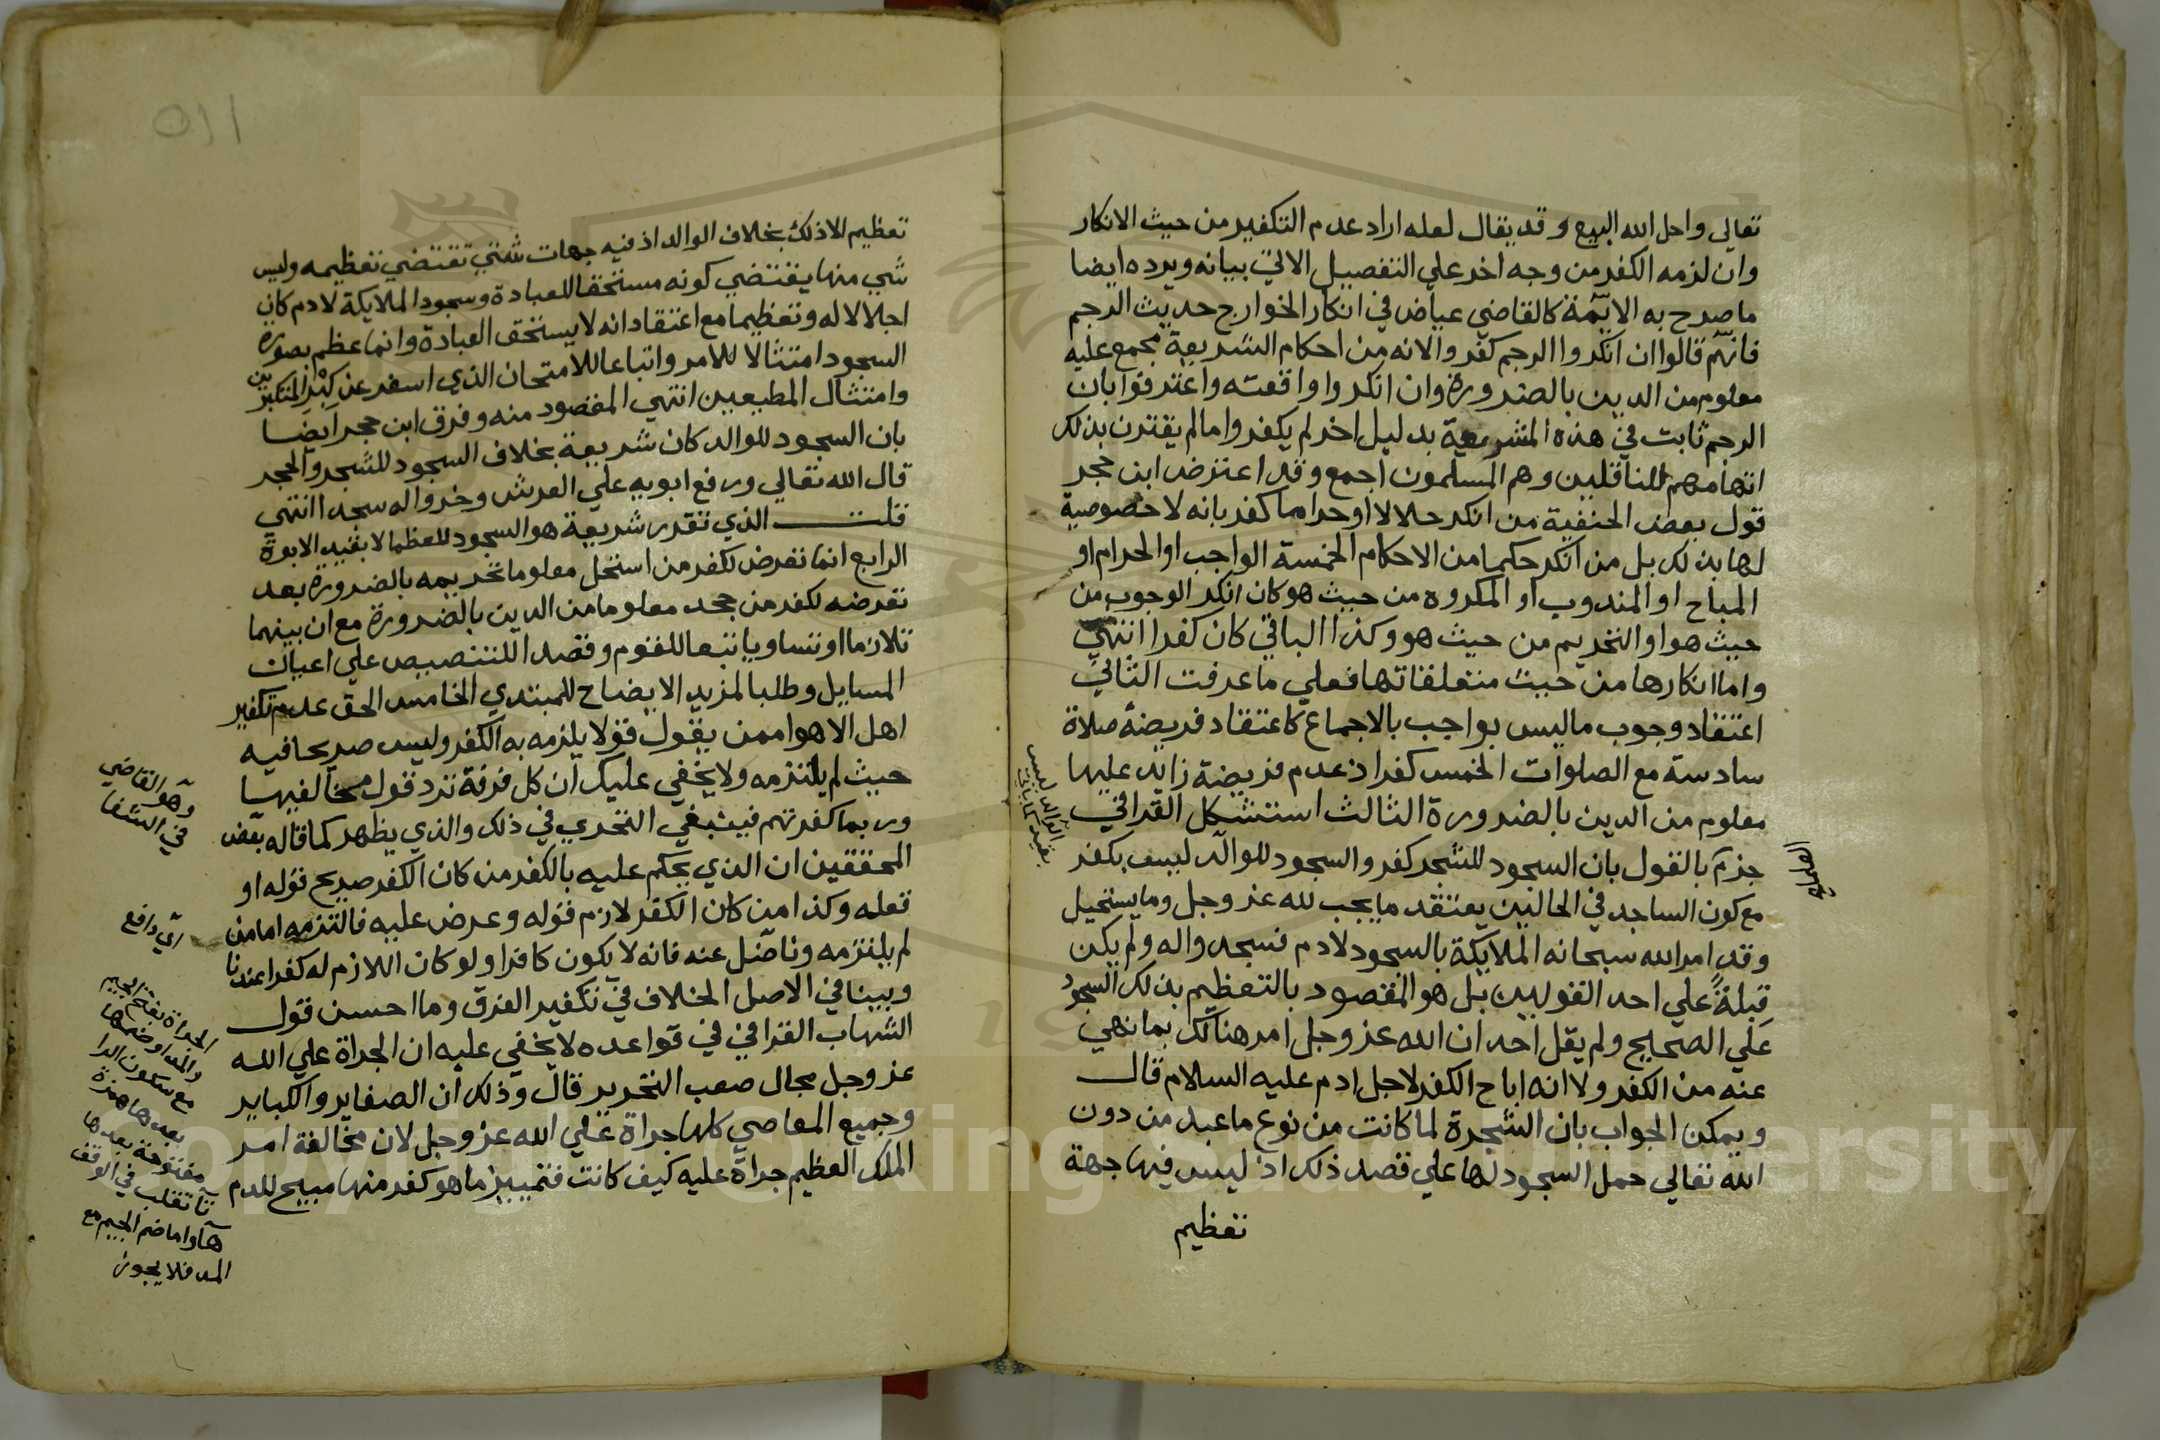 تعالي واحل الله البيع وقد يقال لعله اراد عدم التكفير من حيث الانكار
وان لزمه الكفر من وجه اخر علي التفصيل الاتي بيانه ويرده ايضا
ما صرح به الايمة كالقاضي عياض في انكار الخوارج حديث الرجم
فانهم قالوا ان انكروا الرجم كفروا لانه من احكام الشريعة مجمع عليه
معلوم من الدين بالضرورة وان انكروا واقعته واعترفوا بان
الرجم ثابت في هذه الشريعة بدليل اخر لم يكفروا ما لم يقترن بذلك
اتهامهم للناقلين وهم المسلمون اجمع وقد اعترض ابن حجر
قول بعض الحنفية من انكر حلالا او حراما كفر بانه لا خصوصية
لها بذلك بل من انكر حكما من الاحكام الخمسة الواجب او الحرام او
المباح او المندوب او المكروه من حيث هو كان انكر الوجوب من
حيث هو او التحريم من حيث هو وكذا الباقي كان كفرا انتهي
واما انكارها من حيث متعلقاتها فعلي ما عرفت الثاني
اعتقاد وجوب ما ليس بواجب بالاجماع كاعتقاد فريضة صلاة
سادسة مع الصلوات الخمس كفر اذ عدم فريضة زايد عليها
معلوم من الدين بالضرورة الثالث استشكل القرافي
جزم بالقول بان السجود للشجر كفر والسجود للوالد ليس بكفر
العلماء
مع كون الساجد في الحالين يعتقد ما يجب لله عز وجل وما يستحيل
وقد امر الله سبحانه الملايكة بالسجود لادم فسجدوا له ولم يكن
قبلة علي احد القولين بل هو المقصود بالتعظيم بذلك السجود
علي الصحيح ولم يقل احد ان الله عز وجل امر هنالك بما نهي
عنه من الكفر ولا انه اباح الكفر لاجل ادم عليه السلام قال
ويمكن الجواب بان الشجرة لما كانت من نوع ما عبد من دون
الله تعالي حمل السجود لها علي قصد ذلك اذ ليس فيها جهة
تعظيم
تعظيم الا ذلك بخلاف الوالد اذ فيه جهات شتي تقتضي تعظيمه وليس
شي منها يقتضي كونه مستحقا للعبادة وسجود الملايكة لادم كان
اجلالا له وتعظيما مع اعتقاد انه لا يستحق العبادة وانما عظم بصورة
السجود امتثالا للامر واتباعا للامتحان الذي اسفر عن كبر المتكبرين
وامتثال المطيعين انتهي المقصود منه وفرق ابن حجر ايضا
بان السجود للوالد كان شريعة بخلاف السجود للشجر والحجر
قال الله تعالي ورفع ابويه علي العرش وخروا له سجدا انتهي
قلت الذي تقرر شريعة هو السجود للعظما لا بقيد الابوة
الرابع انما تعرض لكفر من استحل معلوما تحريمه بالضرورة بعد
تعرضه لكفر من جحد معلوما من الدين بالضرورة مع ان بينهما
تلازما او تساويا تبعا للقوم وقصدا للتنصيص علي اعيان
المسايل وطلبا لمزيد الايضاح للمبتدي الخامس الحق عدم تكفير
اهل الاهوا ممن يقول قولا يلزمه به الكفر وليس صريحا فيه
حيث لم يلتزمه ولا يخفي عليك ان كل فرقة ترد قول مخالفيها
وربما كفرتهم فينبغي التحري في ذلك والذي يظهر كما قاله بعض
وهو القاضي
في الشفا
المحققين ان الذي يحكم عليه بالكفر من كان الكفر صريح قوله او
فعله وكذا من كان الكفر لازم قوله وعرض عليه فالتزمه اما من
لم يلتزمه وناضل عنه فانه لا يكون كافرا ولو كان اللازم له كفرا عندنا
اي دافع
وبينا في الاصل الخلاف في تكفير الفرق وما احسن قول
الشهاب القرافي في قواعده لا يخفي عليه ان الجراة علي الله
عز وجل مجال صعب التحرير قال وذلك ان الصغاير والكباير
وجميع المعاصي كلها جراة علي الله عز وجل لان مخالفة امر
الملك العظيم جراة عليه كيف كانت فتمييز ما هو كفر منها مبيح للدم
الجراة بفتح الجيم
والمد او ضمها
مع سكون الرا
بعدها همزة
مفتوحة بعدها
تا تقلب في الوقف
هاء واما ضم الجيم مع
المد فلا يجوز